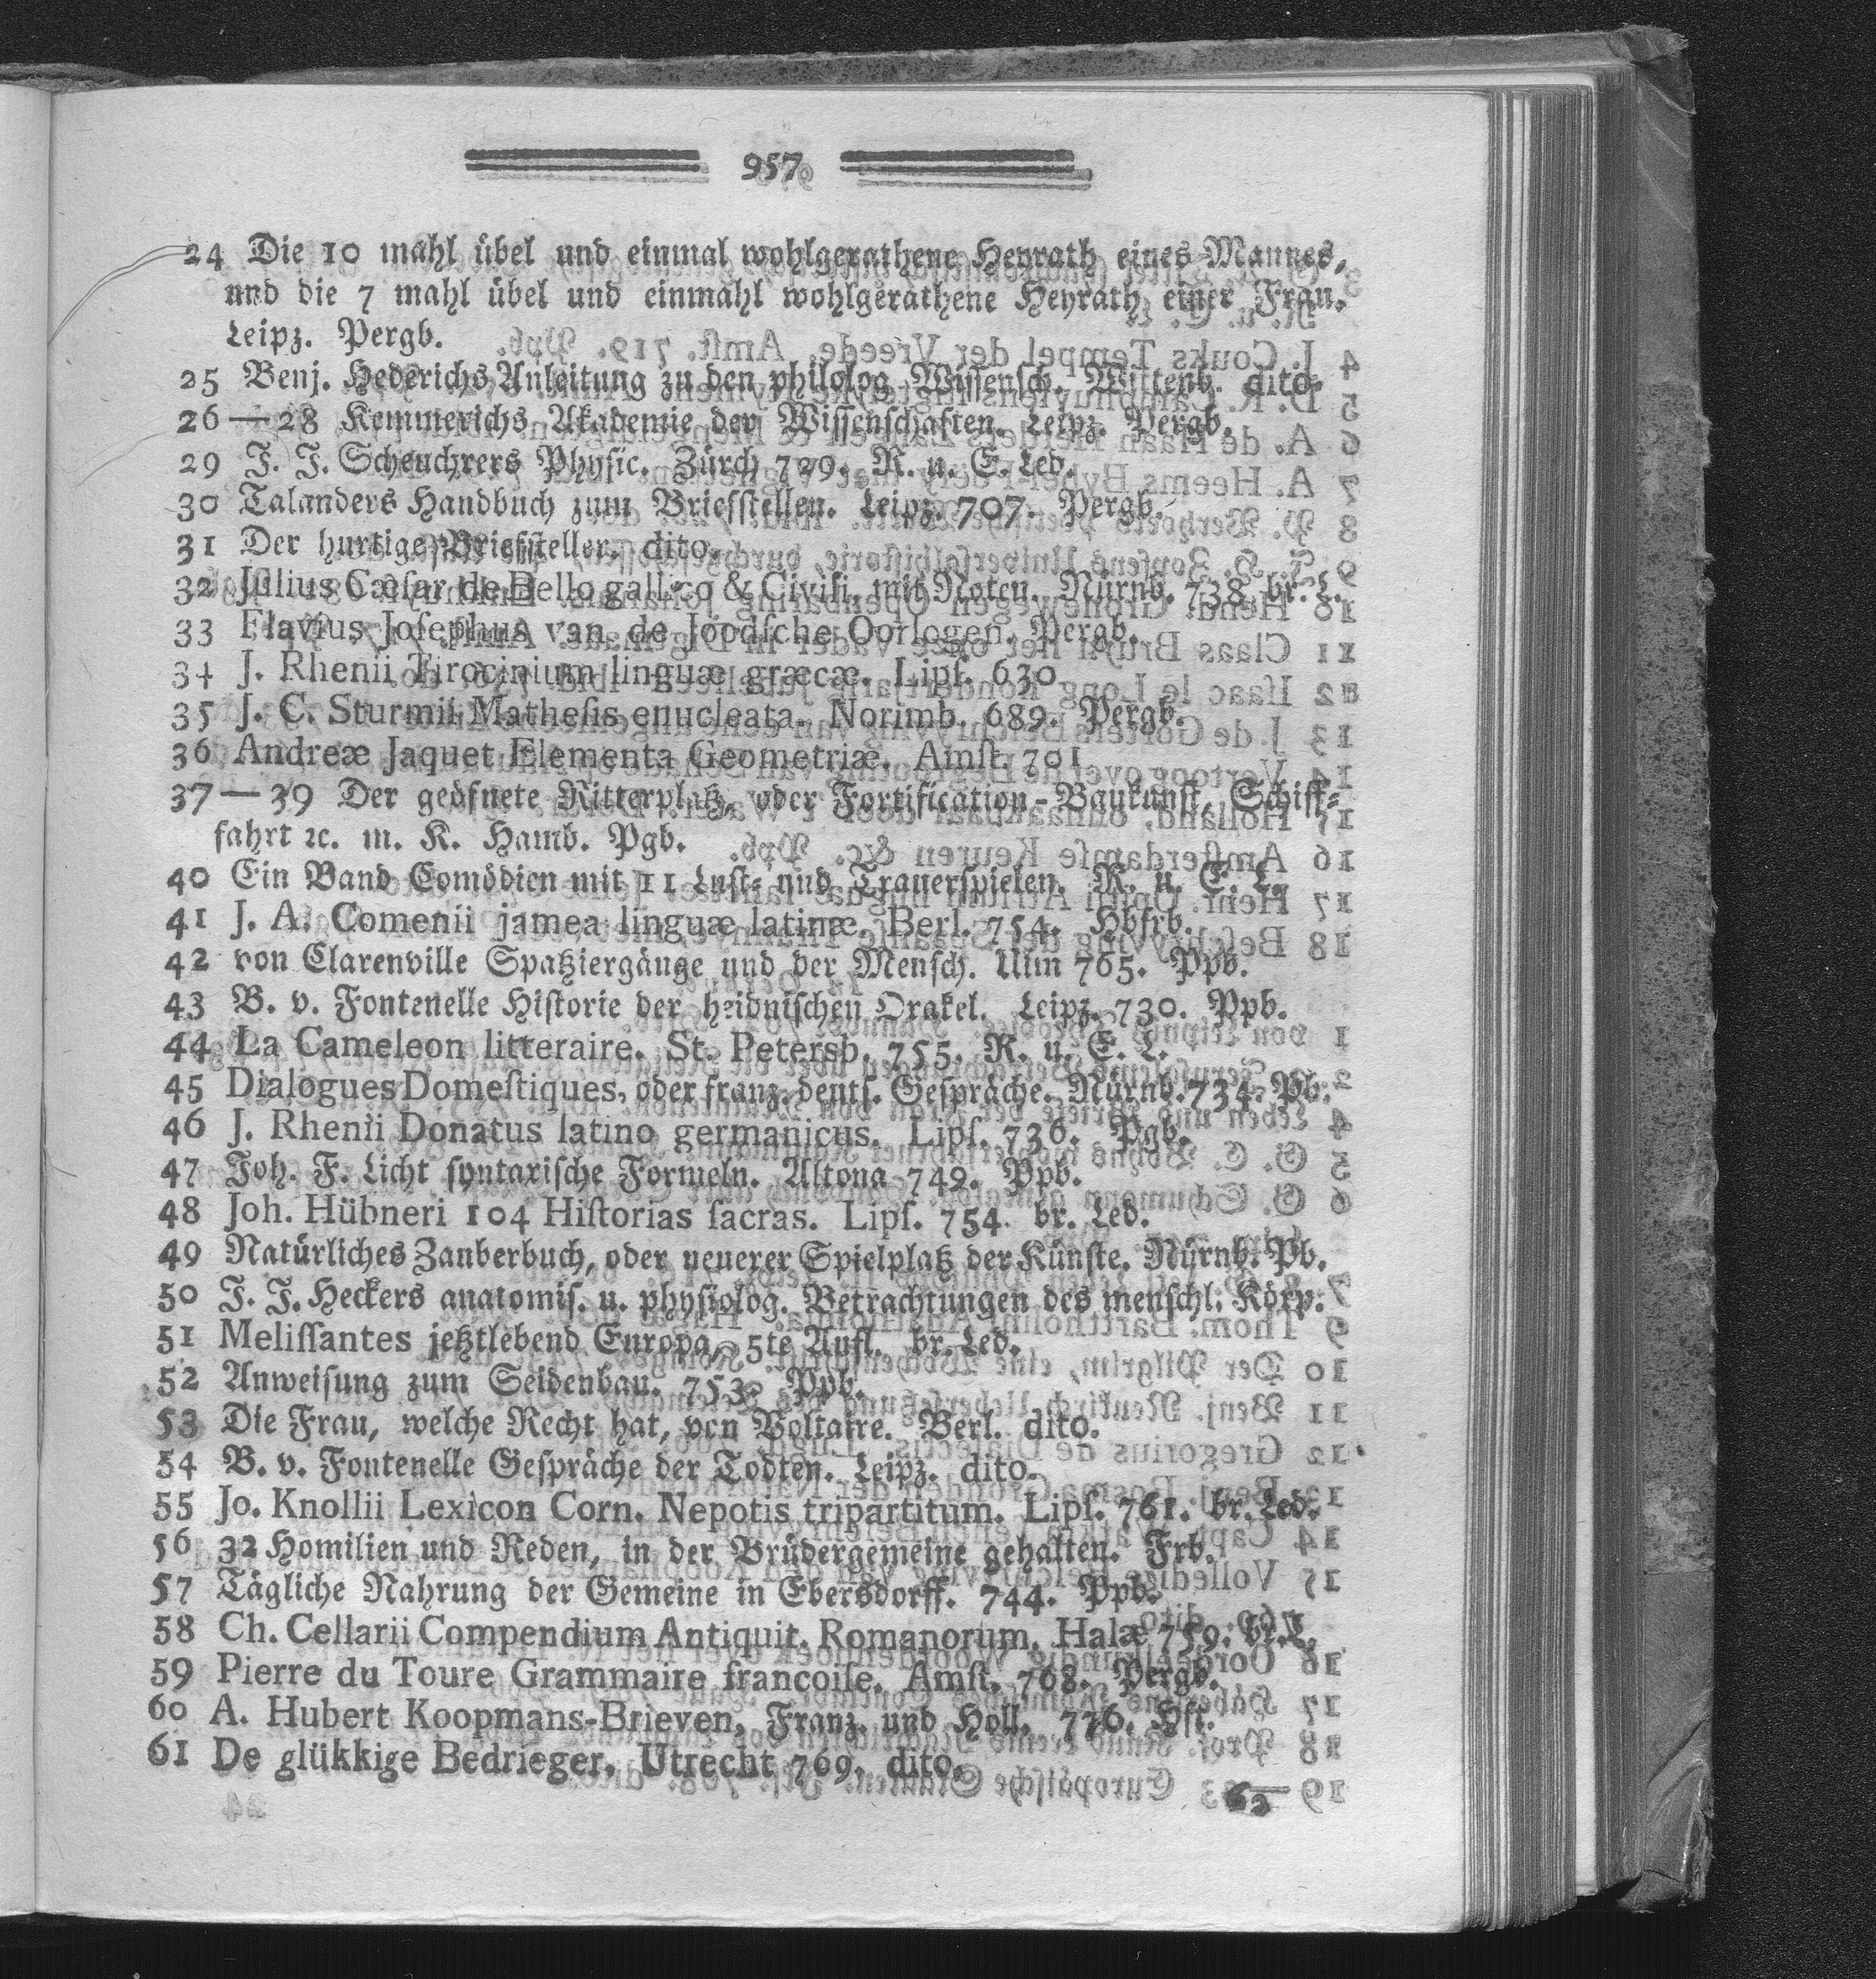 957
24 Die 10 mahl übel und einmal wohlgerathene Heyrath eines Mannes,
und die 7 mahl übel und einmahl wohlgerathene Heyrath einer Frau.
Leipz. Pergb.
25 Benj. Hederichs Anleitung zu den philolog. Wissensch. Wittenb. dito.
26—28 Kemmerichs Akademie der Wissenschaften. Leipz. Pergb.
29 J. J. Scheuchrers Physic. Zürch 729. R. u. E. Led.
30 Talanders Handbuch zum Briefstellen. Leipz. 707. Pergb.
31 Der hurtige Briefsteller. dito.
32 Julius Cæſar de Bello gallico & Civili, mit Noten. Nürnb. 738. br. L.
33 Flavius Joſephus van de Joodſche Oorlogen. Pergb.
34 J. Rhenii Tirocinium linguæ græcæ. Lipſ. 630
35 J. C. Sturmii Matheſis enucleata. Norimb. 689. Pergb.
36 Andreæ Jaquet Elementa Geometriæ. Amſt. 701
37—39 Der geöfnete Ritterplatz, oder Fortification-Baukunst, Schiff-
fahrt ꝛc. m. K. Hamb. Pgb.
40 Ein Band Comödien mit 11 Lust- und Trauerspielen. R. u. E. L.
41 J. A. Comenii jamea linguæ latinæ. Berl. 754. Hbfrb.
42 von Clarenville Spatziergänge und der Mensch. Ulm 765. Ppb.
43 B. v. Fontenelle Historie der heidnischen Orakel. Leipz. 730. Ppb.
44 La Cameleon litteraire. St. Petersb. 755. R. u. E. L.
45 Dialogues Domeſtiques, oder franz. deuts. Gespräche. Nürnb. 734. Pb.
46 J. Rhenii Donatus latino germanicus. Lipſ. 736. Pgb.
47 Joh. F. Licht syntaxische Formeln. Altona 749. Ppb.
48 Joh. Hübneri 104 Hiſtorias ſacras. Lipſ. 754. br. Led.
49 Natürliches Zauberbuch, oder neuerer Spielplatz der Künste. Nürnb. Pb.
50 J. J. Heckers anatomis. u. physiolog. Betrachtungen des menschl. Körp.
51 Meliſſantes jetztlebend Europa, 5te Aufl. br. Led.
52 Anweisung zum Seidenbau. 753. Ppb.
53 Die Frau, welche Recht hat, von Voltaire. Berl. dito.
54 B. v. Fontenelle Gespräche der Todten. Leipz. dito.
55 Jo. Knollii Lexicon Corn. Nepotis tripartitum. Lipſ. 761. br. Led.
56 32 Homilien und Reden, in der Brüdergemeine gehalten. Frb.
57 Tägliche Nahrung der Gemeine in Ebersdorff. 744. Ppb.
58 Ch. Cellarii Compendium Antiquit. Romanorum. Halæ 759. br. L.
59 Pierre du Toure Grammaire francoiſe. Amſt. 768. Pergb.
60 A. Hubert Koopmans-Brieven, Franz. und Holl. 776. Hft.
61 De glükkige Bedrieger. Utrecht 769. dito.
62